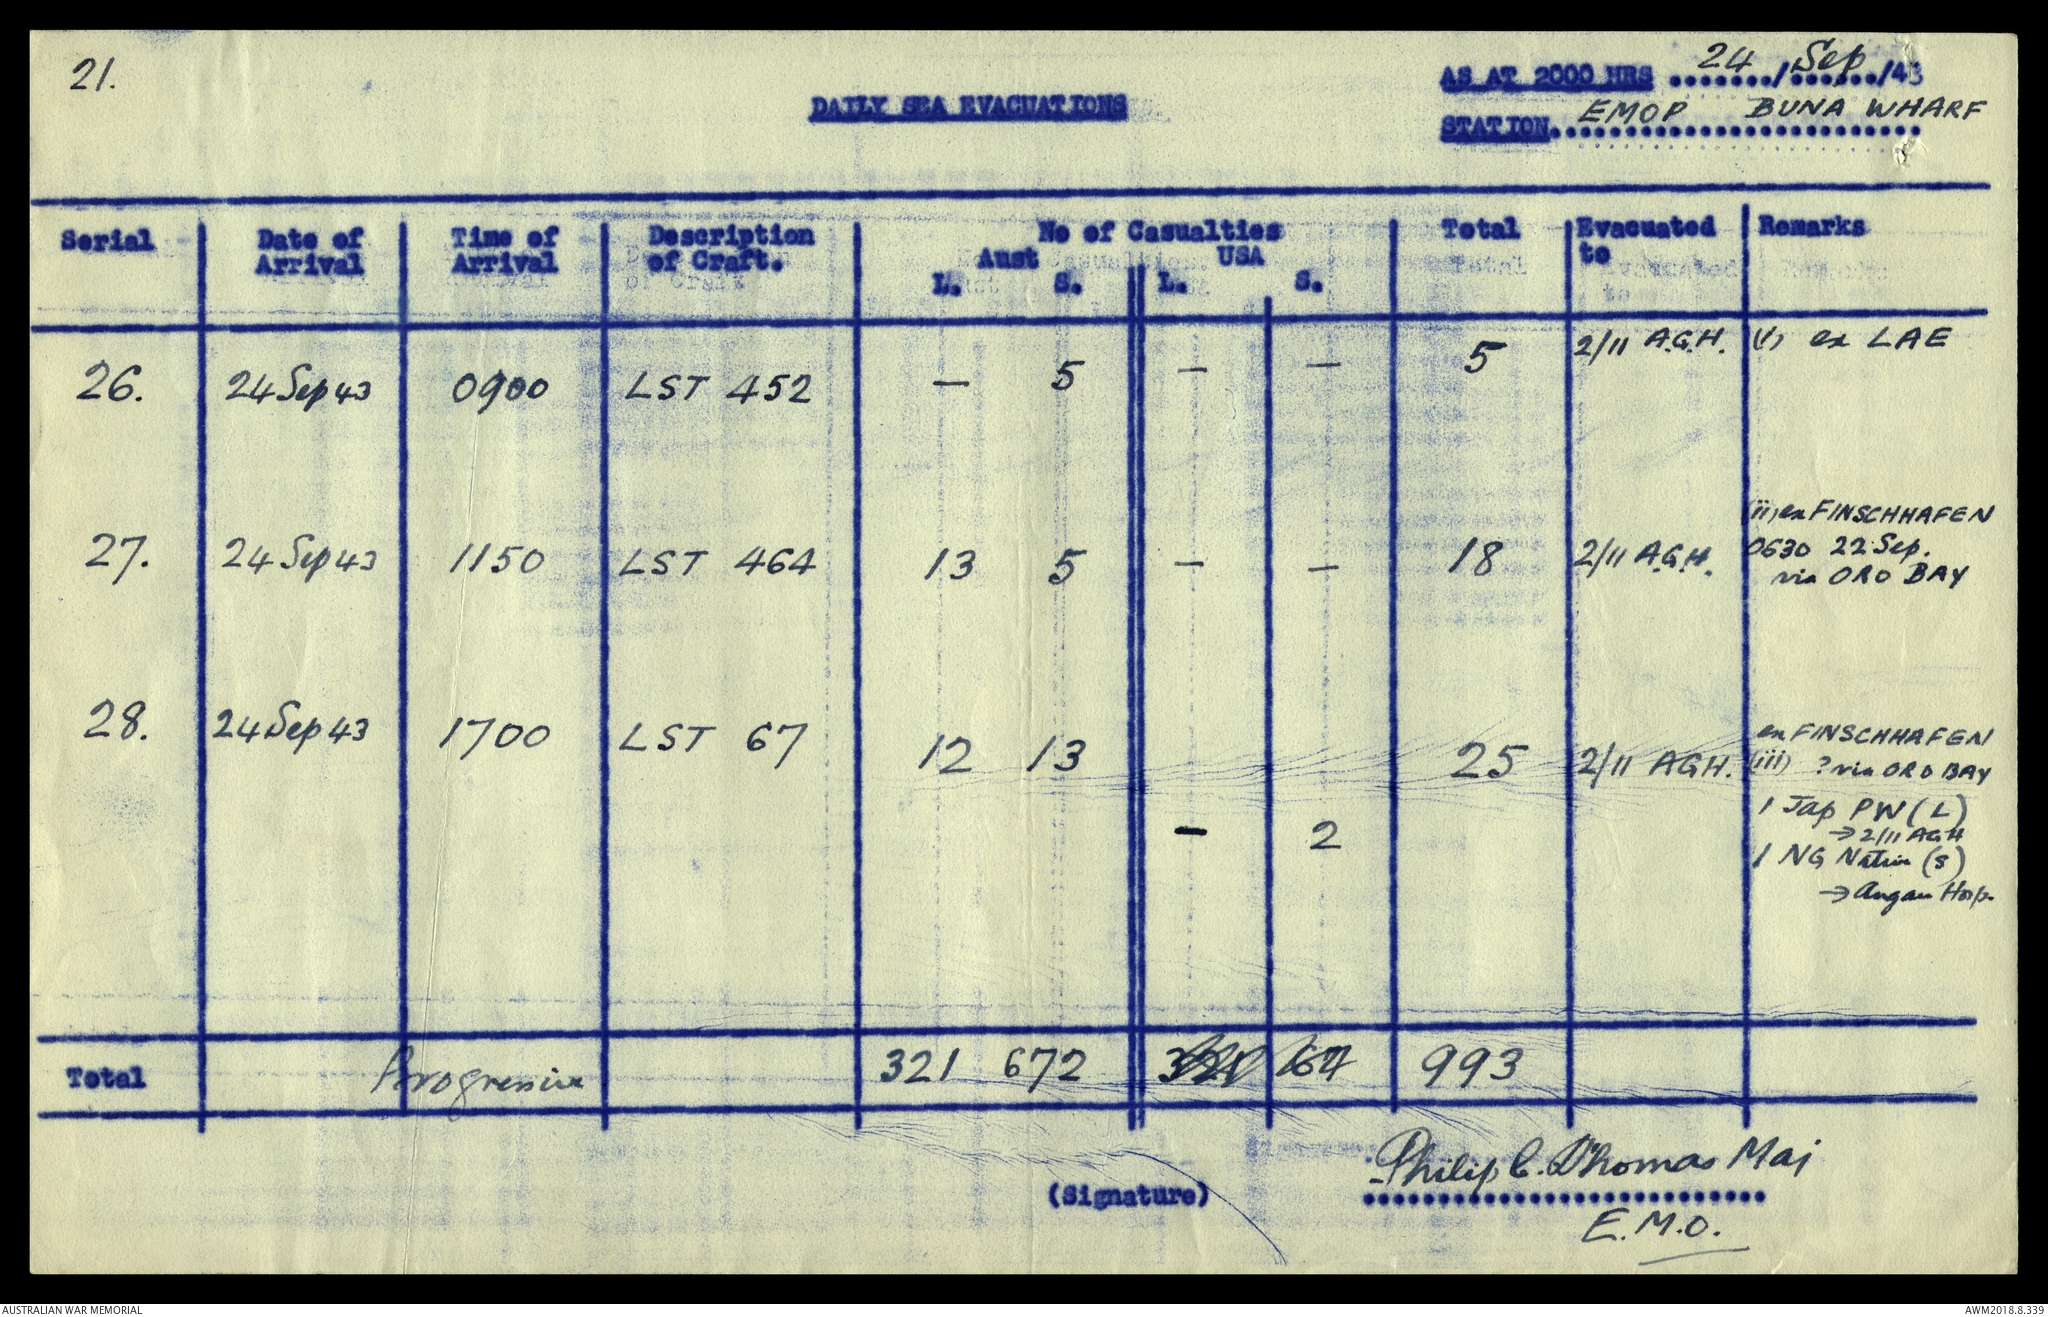 21.
AS AT 2000 HRS 24/Sep/43
DAILY SEA EVACUATIONS
STATION EMOP BUNA WHARF
Serial Date of Arrival Time of Arrival Description of Craft. No of Casualties Total Evacuated to Remarks
Aust USA
L. S. L. S.
26. 24 Sep 43 0900 LST 452 – 5 – – 5 2/11 A.G.H. (i) ex LAE
27. 24 Sep 43 1150 LST 464 13 5 – – 18 2/11 A.G.H. (ii) ex FINSCHHAFEN
0630 22 Sep.
via ORO BAY
28. 24 Sep 43 1700 LST 67 12 13 25 2/11 AGH. ex FINSCHHAFEN
(iii) ? via ORO BAY
– 2
1 Jap PW (L)
→ 2/11 AGH
1 NG Native (S)
→ Angau Hosp.
Total Progressive 321 672 993
(Signature) Philip C. Thomas Maj
E.M.O.
AUSTRALIAN WAR MEMORIAL
AWM2018.8.339